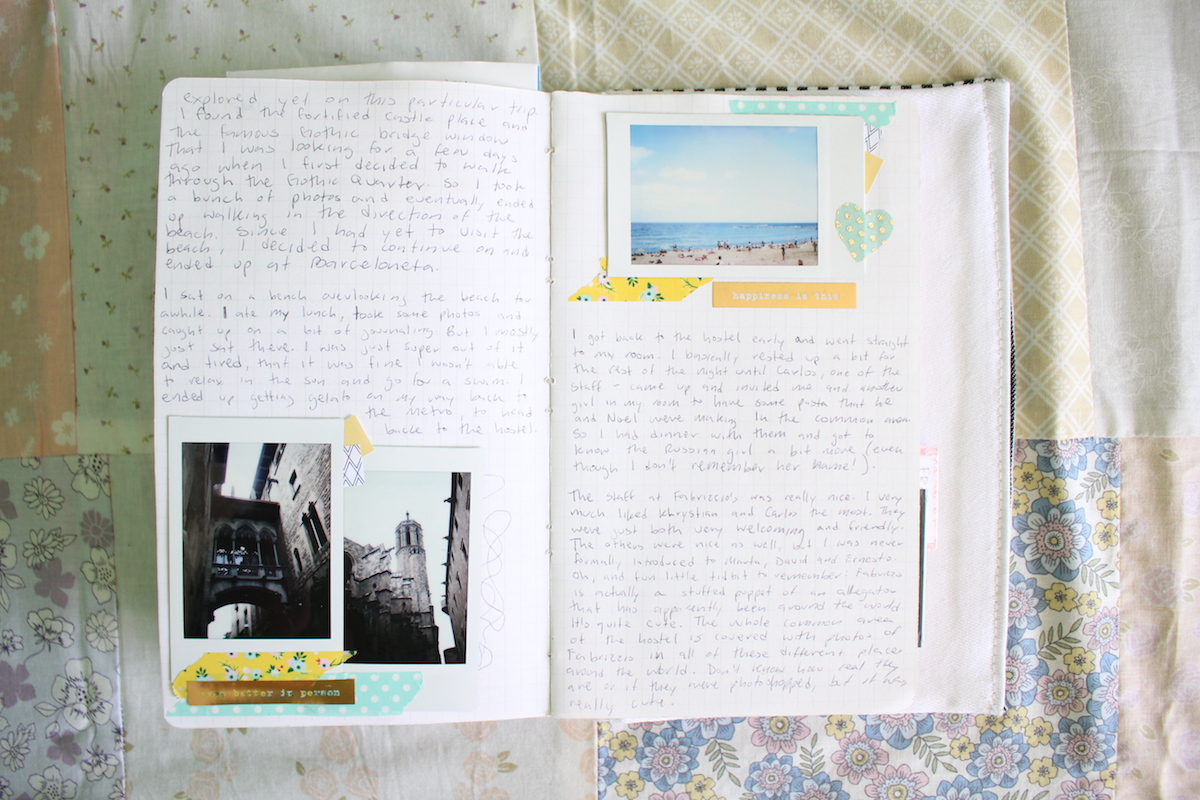 explored yet on this particular trip.
I found the fortified castle place and
the famous Gothic bridge window
that I was looking for a few days
ago when I first decided to walk
through the Gothic Quarter. So I took
a bunch of photos and eventually ended
up walking in the direction of the
beach. Since I had yet to visit the
beach, I decided to continue on and
ended up at Barceloneta.
I sat on a bench overlooking the beach for
awhile. I ate my lunch, took some photos and
caught up on a bit of journaling. But I mostly
just sat there. I was just super out of it
and tired, that it was fine I wasn't able
to relax in the sun and go for a swim. I
ended up getting gelato on my way back to
the metro, to head
back to the hostel.
better in person
happiness is this
I got back to the hostel early and went straight
to my room. I basically rested up a bit for
the rest of the night until Carlos, one of the
staff - came up and invited me and another
girl in my room to have some pasta that he
and Noel were making in the common area.
So I had dinner with them and got to
know the Russian girl a bit more (even
though I don't remember her name!).
The staff at Fabrizzio's was really nice. I very
much liked Khrystian and Carlos the most. They
were just both very welcoming and friendly.
The others were nice as well, but I was never
formally introduced to Marta, David and Ernesto.
Oh, and fun little tidbit to remember: Fabrizzio
is actually a stuffed puppet of an alligator
that has apparently been around the world
It's quite cute. The whole common area
of the hostel is covered with photos of
Fabrizzio in all of these different places
around the world. Don't know how real they
are or if they were photoshopped, but it was
really cute.